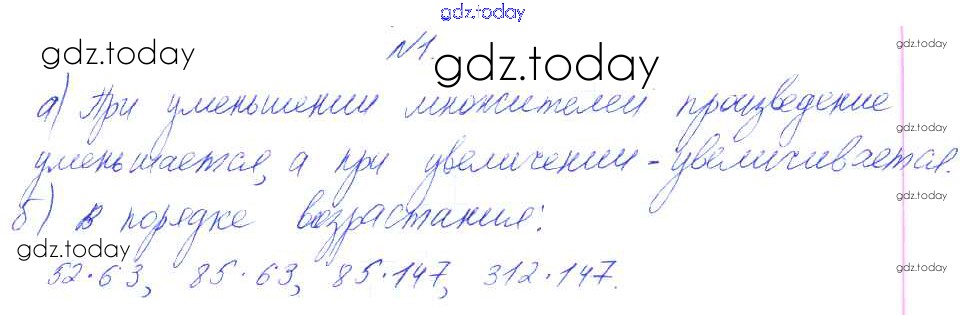 gdz.today
gdz.today
№1.
gdz.today
gdz.today
а) При уменьшении множителей произведение
gdz.today
уменьшается, а при увеличении - увеличивается.
gdz.today
б) в порядке возрастания:
gdz.today
52·63, 85·63, 85·147, 312·147.
gdz.today